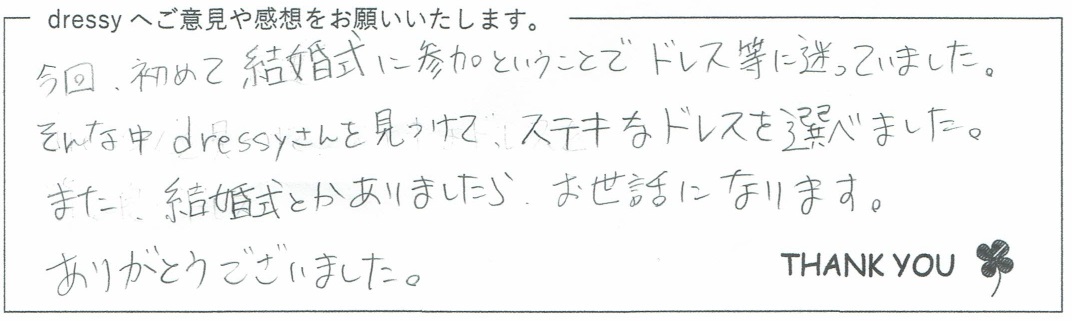 dressy へご意見や感想をお願いいたします。
今回、初めて結婚式に参加ということでドレス等に迷っていました。
そんな中dressyさんを見つけて、ステキなドレスを選べました。
また、結婚式とかありましたら、お世話になります。
ありがとうございました。
THANK YOU